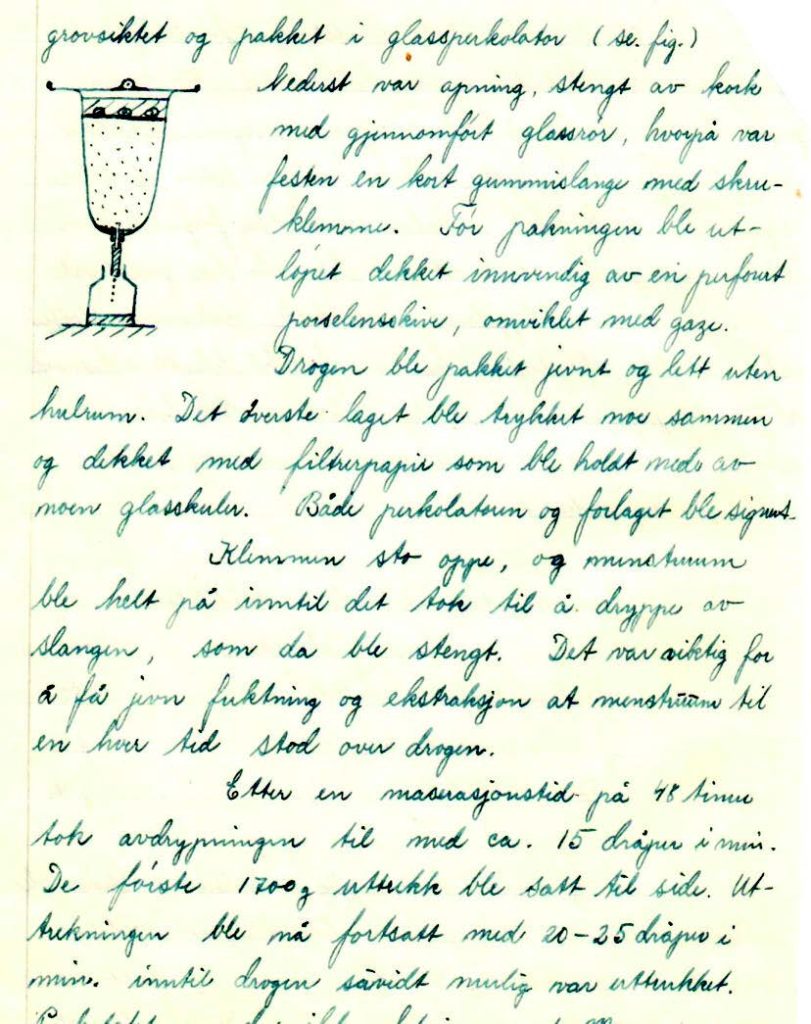 grovsiktet og pakket i glassperkolator (se. fig.)
Nederst var åpning, stengt av kork
med gjennomført glassrør, hvorpå var
festen en kort gummislange med skru-
klemme. Før pakningen ble ut-
løpet dekket innvendig av en perforert
porselensskive, omviklet med gaze.
Drogen ble pakket jevnt og lett uten
hulrum. Det øverste laget ble trykket noe sammen
og dekket med filtrerpapir som ble holdt nede av
noen glasskuler. Både perkolatoren og forlaget ble signert.
Klemmen sto oppe, og menstruum
ble helt på inntil det tok til å dryppe av
slangen, som da ble stengt. Det var viktig for
å få jevn fuktning og ekstraksjon at menstruum til
en hver tid stod over drogen.
Etter en maserasjonstid på 48 timer
tok avdrypningen til med ca. 15 dråper i min.
De første 1700g uttrekk ble satt til side. Ut-
trekningen ble nå fortsatt med 20-25 dråper i
min. inntil drogen såvidt mulig var uttrukket.